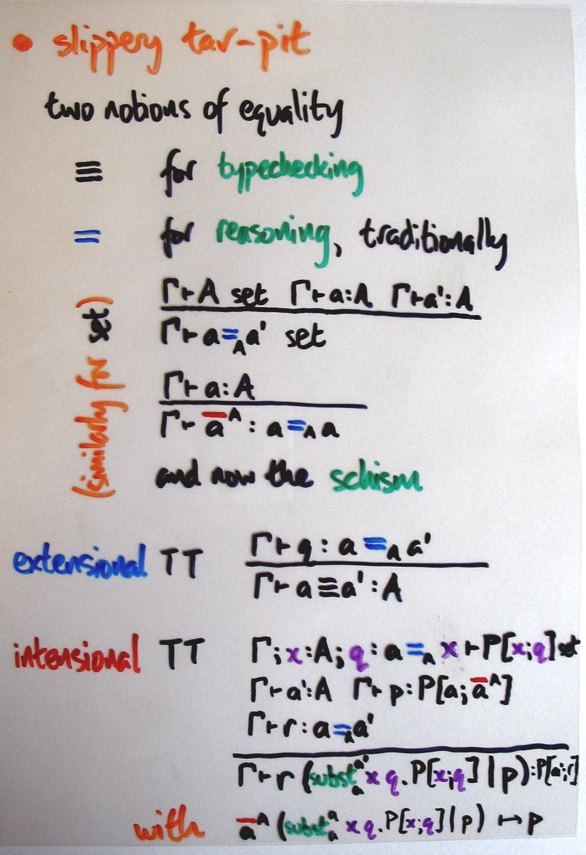 • slippery tar-pit
two notions of equality
≡ for typechecking
= for reasoning, traditionally
(similarly for set)
Γ⊢A set Γ⊢a:A Γ⊢a':A
Γ⊢a=_A a' set
Γ⊢a:A
Γ⊢a̅^A : a=_A a
and now the schism
extensional TT
Γ⊢q : a =_A a'
Γ⊢a≡a' : A
intensional TT
Γ;x:A;q:a=_A x⊢P[x;q] set
Γ⊢a':A Γ⊢p:P[a;a̅^A]
Γ⊢r:a=_A a'
Γ⊢r(subst_a^a' x q.P[x;q]|p):P[a';r]
with a̅^A (subst_a^a x q.P[x;q]|p) ↦ p